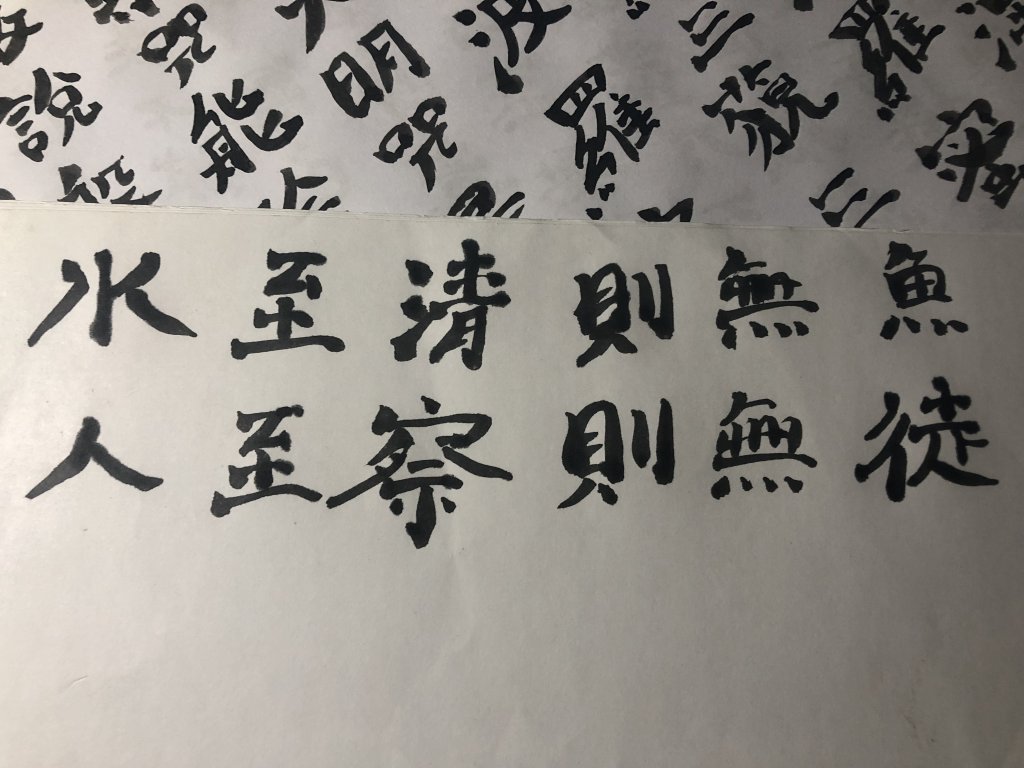 說 能 明 波 三 羅
咒 咒 羅 藐 三
水至清則無魚
人至察則無徒